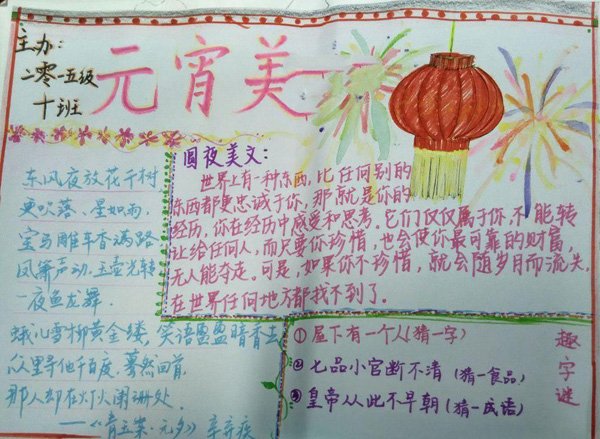 主办:
二零一五级
十班
元宵美
东风夜放花千树
更吹落、星如雨,
宝马雕车香满路
凤箫声动,玉壶光转
一夜鱼龙舞.
蛾儿雪柳黄金缕,笑语盈盈暗香去
众里寻他千百度,蓦然回首,
那人却在灯火阑珊处.
——《青玉案·元夕》辛弃疾
圆夜美文:
世界上有一种东西,比任何别的
东西都更忠诚于你,那就是你的
经历,你在经历中感受和思考,它们仅仅属于你,不能转
让给任何人,而只要你珍惜,也会使你最可靠的财富,
无人能夺走。可是,如果你不珍惜,就会随岁月而流失,
在世界任何地方都找不到了。
趣字谜
①屋下有一个人(猜一字)
②七品小官断不清(猜一食品)
③皇帝从此不早朝(猜一成语)